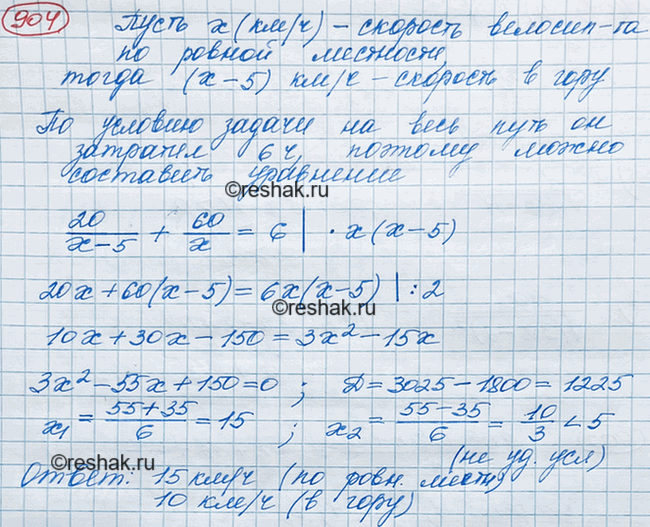 904
Пусть x (км/ч) – скорость велосип-та
по ровной местности,
тогда (x – 5) км/ч – скорость в гору
По условию задачи на весь путь он
затратил 6 ч, поэтому можно
составить уравнение
©reshak.ru
20/(x–5) + 60/x = 6 | · x(x–5)
20x + 60(x–5) = 6x(x–5) | : 2
10x + 30x – 150 = 3x² – 15x
3x² – 55x + 150 = 0 ; Д = 3025 – 1800 = 1225
x₁ = (55+35)/6 = 15 ; x₂ = (55–35)/6 = 10/3 < 5
(не уд. усл)
©reshak.ru
Ответ: 15 км/ч (по ровн. местн)
10 км/ч (в гору)